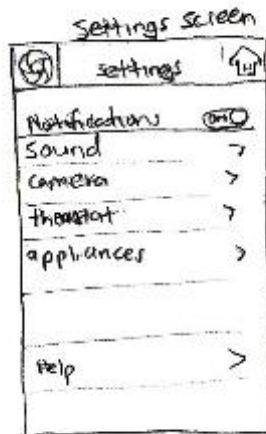 Settings Screen
settings
Notifications ON
Sound >
camera >
thermostat >
appliances >
Help >